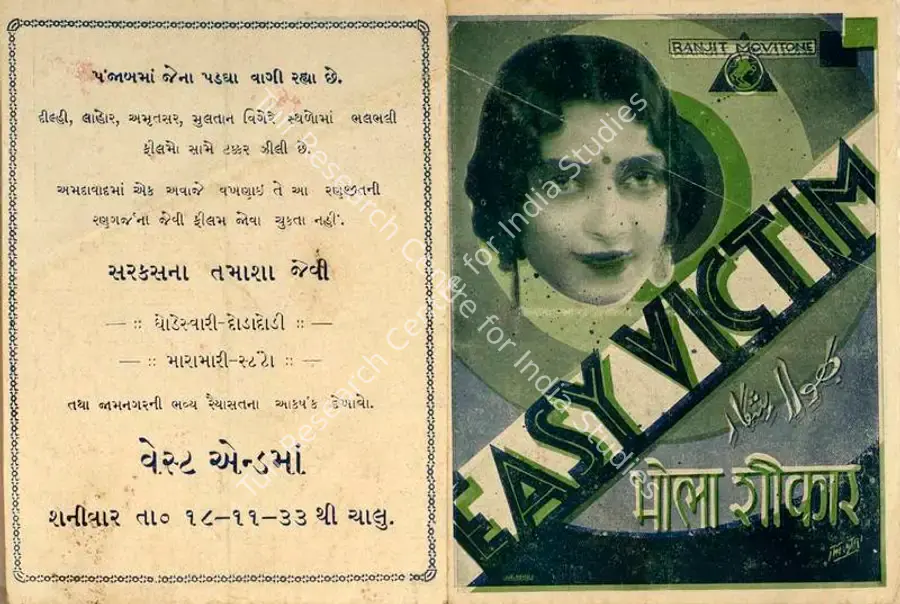 પંજાબમાં જેના પડઘા વાગી રહ્યા છે.
દીલ્હી, લાહોર, અમૃતસર, મુલતાન વિગેરે સ્થળોમાં ભલભલી
ફીલ્મો સામે ટક્કર ઝીલી છે.
અમદાવાદમાં એક અવાજે વખણાઇ તે આ રણજીતની
રણગર્જના જેવી ફીલમ જોવા ચુકતા નહીં.
સરકસના તમાશા જેવી
—:: ઘોડેસ્વારી-દોડાદોડી ::—
—:: મારામારી-સ્ટંટો ::—
તથા જામનગરની ભવ્ય રૈયાસતના આકર્ષક દેખાવો.
વેસ્ટ એન્ડમાં
શનીવાર તા૦ ૧૮-૧૧-૩૩ થી ચાલુ.
RANJIT MOVITONE
EASY VICTIM
بھولا شکار
भोला शीकार
Tuli Research Centre for India Studies
Tuli Research Centre for India Studies